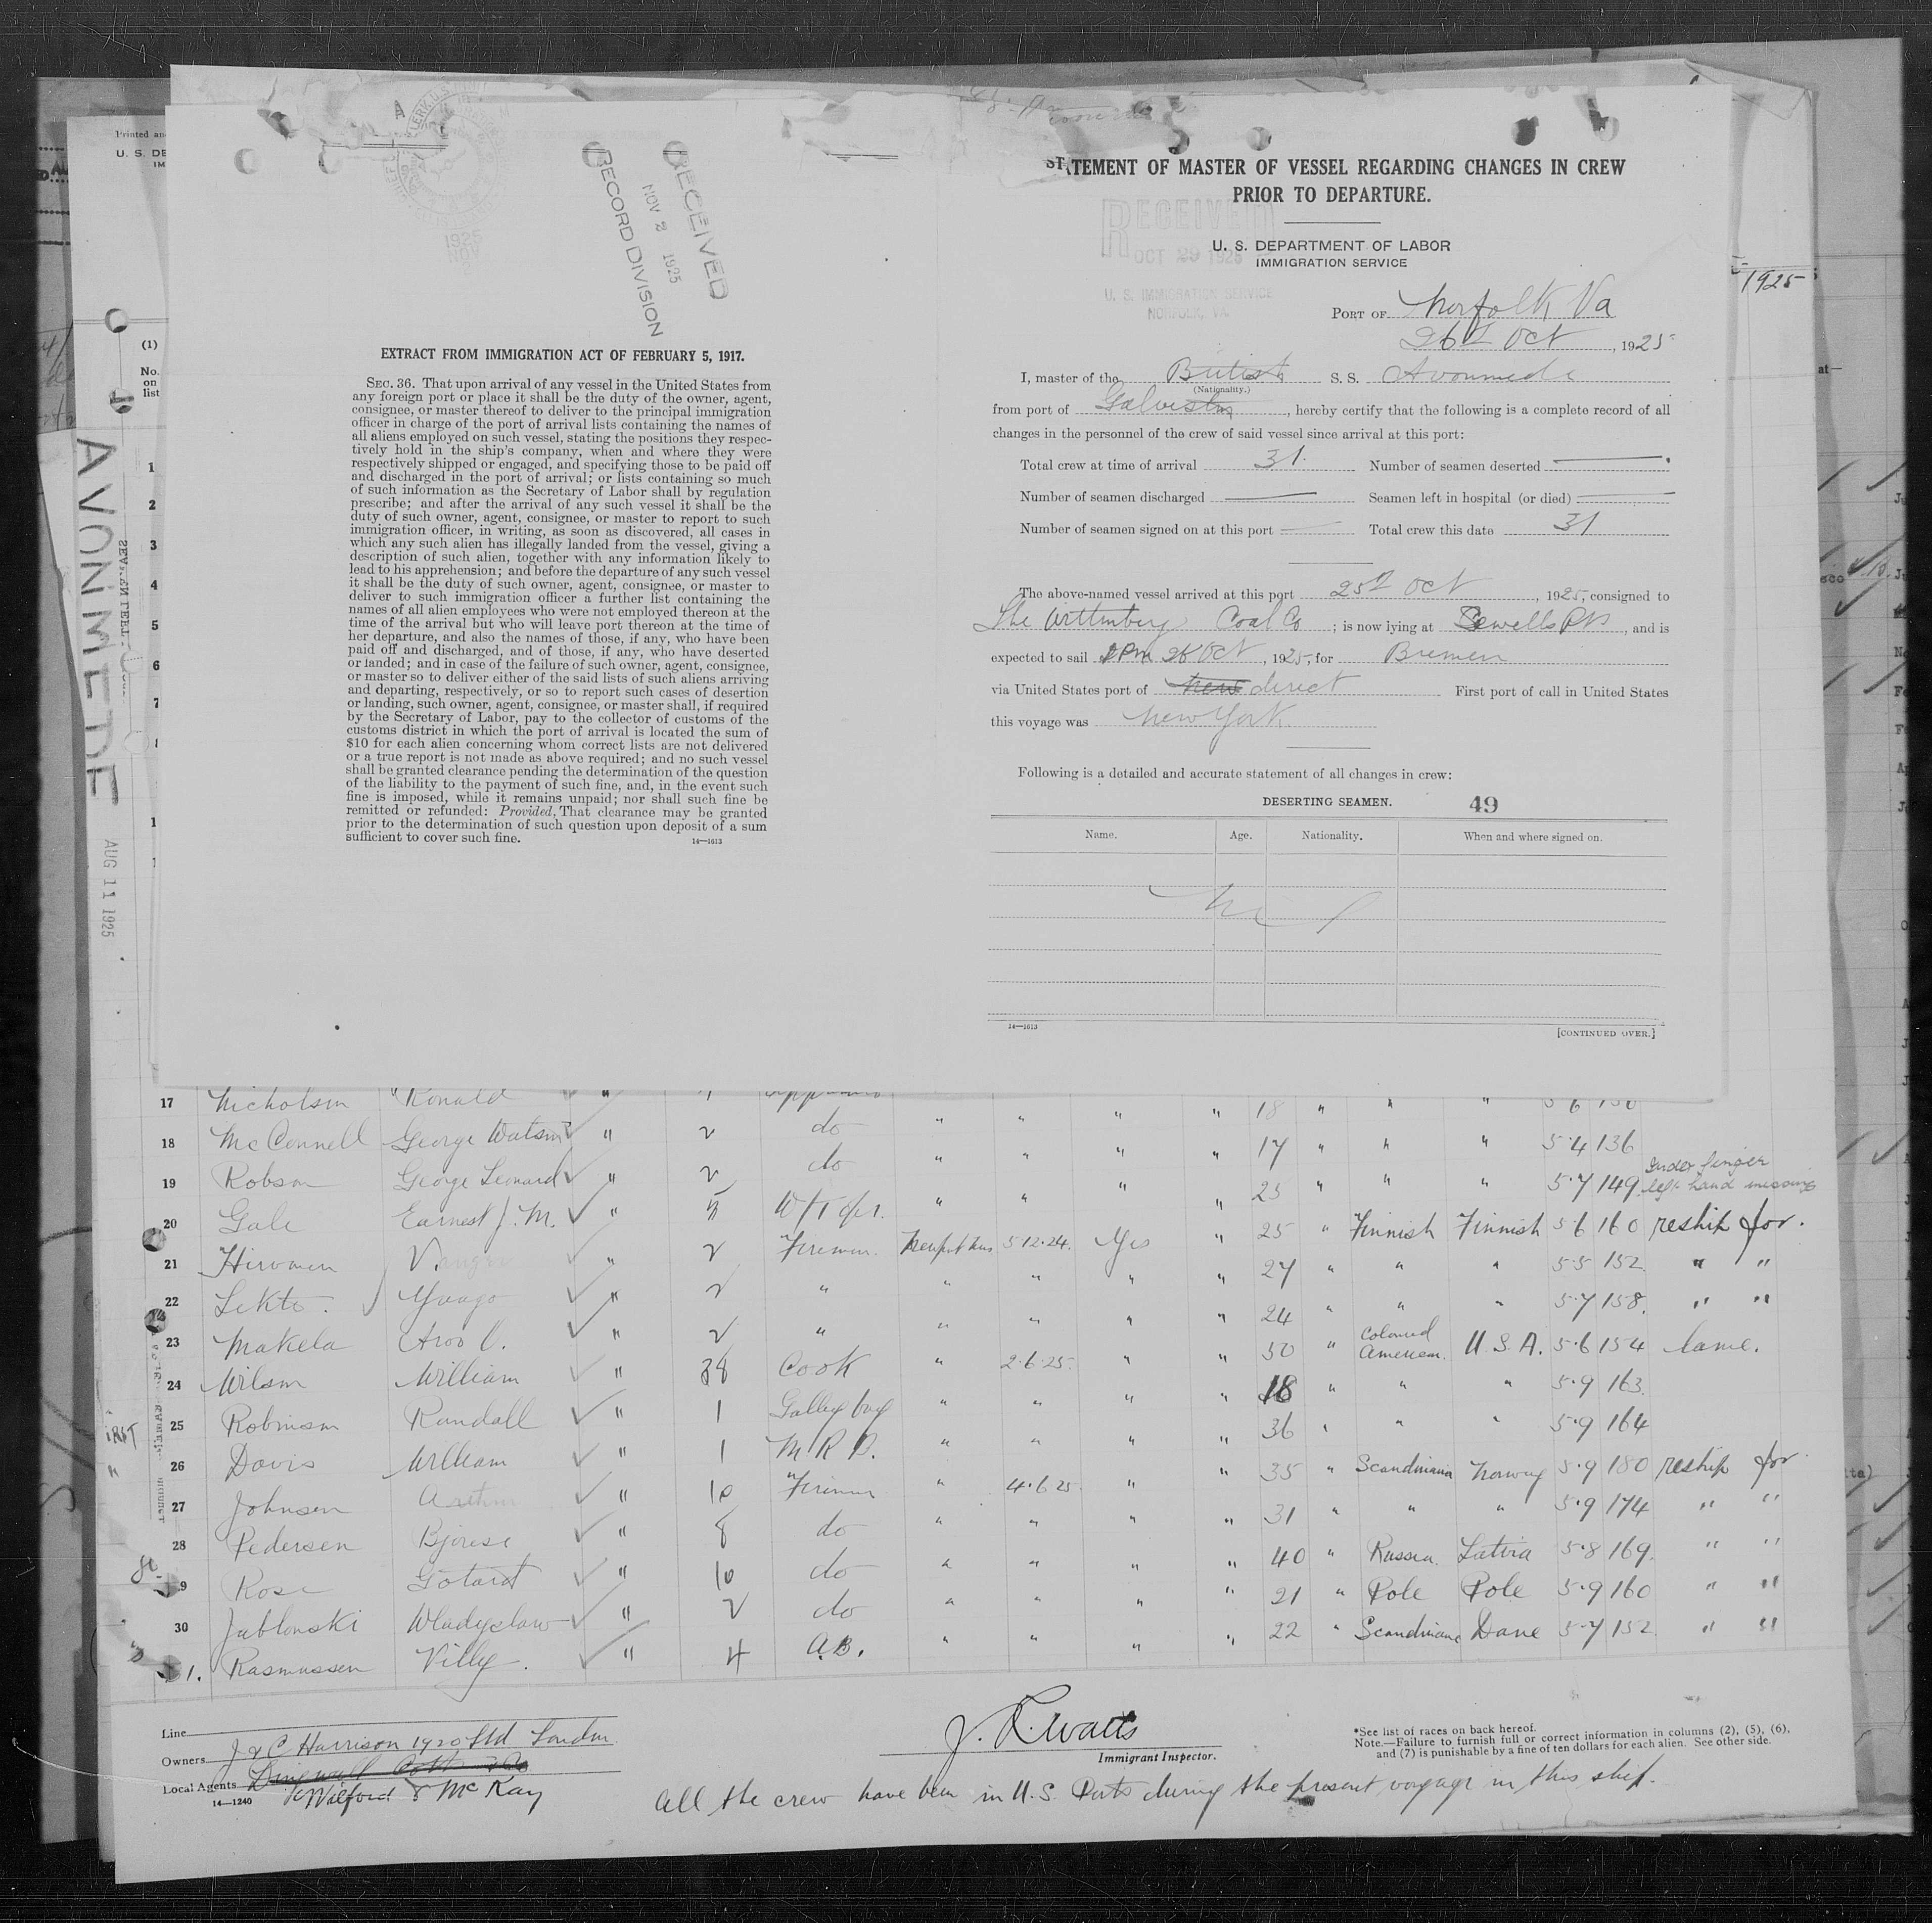 Printed an
U. S. DE
IM
(1)
No.
on
list
1
2
3
4
5
6
7
AVONMEDE
AUG 11 1925
RECEIVED
NOV 2 1925
RECORD DIVISION
1925
NOV
2
EXTRACT FROM IMMIGRATION ACT OF FEBRUARY 5, 1917.
SEC. 36. That upon arrival of any vessel in the United States from
any foreign port or place it shall be the duty of the owner, agent,
consignee, or master thereof to deliver to the principal immigration
officer in charge of the port of arrival lists containing the names of
all aliens employed on such vessel, stating the positions they respec-
tively hold in the ship's company, when and where they were
respectively shipped or engaged, and specifying those to be paid off
and discharged in the port of arrival; or lists containing so much
of such information as the Secretary of Labor shall by regulation
prescribe; and after the arrival of any such vessel it shall be the
duty of such owner, agent, consignee, or master to report to such
immigration officer, in writing, as soon as discovered, all cases in
which any such alien has illegally landed from the vessel, giving a
description of such alien, together with any information likely to
lead to his apprehension; and before the departure of any such vessel
it shall be the duty of such owner, agent, consignee, or master to
deliver to such immigration officer a further list containing the
names of all alien employees who were not employed thereon at the
time of the arrival but who will leave port thereon at the time of
her departure, and also the names of those, if any, who have been
paid off and discharged, and of those, if any, who have deserted
or landed; and in case of the failure of such owner, agent, consignee,
or master so to deliver either of the said lists of such aliens arriving
and departing, respectively, or so to report such cases of desertion
or landing, such owner, agent, consignee, or master shall, if required
by the Secretary of Labor, pay to the collector of customs of the
customs district in which the port of arrival is located the sum of
$10 for each alien concerning whom correct lists are not delivered
or a true report is not made as above required; and no such vessel
shall be granted clearance pending the determination of the question
of the liability to the payment of such fine, and, in the event such
fine is imposed, while it remains unpaid; nor shall such fine be
remitted or refunded: Provided, That clearance may be granted
prior to the determination of such question upon deposit of a sum
sufficient to cover such fine.
14—1613
STATEMENT OF MASTER OF VESSEL REGARDING CHANGES IN CREW
PRIOR TO DEPARTURE.
RECEIVED
OCT 29 1925
U. S. IMMIGRATION SERVICE
NORFOLK, VA.
U. S. DEPARTMENT OF LABOR
IMMIGRATION SERVICE
1925
PORT OF Norfolk Va
26th Oct, 1925
I, master of the British S. S. Avonmede
(Nationality.)
from port of Galveston, hereby certify that the following is a complete record of all
changes in the personnel of the crew of said vessel since arrival at this port:
Total crew at time of arrival 31. Number of seamen deserted —
Number of seamen discharged — Seamen left in hospital (or died) —
Number of seamen signed on at this port — Total crew this date 31
The above-named vessel arrived at this port 25th Oct, 1925, consigned to
The Wittenberg Coal Co; is now lying at Sewells Pt, and is
expected to sail 2 Pm 26 Oct, 1925, for Bremen
via United States port of New direct First port of call in United States
this voyage was New York.
Following is a detailed and accurate statement of all changes in crew:
DESERTING SEAMEN. 49
Name. Age. Nationality. When and where signed on.
Nil
14—1613 [CONTINUED OVER.]
17 Nicholson Ronald
18 McConnell George Watson " 2 do " " " " 18 " " " 5 6 130
19 Robson George Leonard " 2 do " " " " 17 " " " 5·4 136
20 Gale Earnest J. M. " W/T opr. " " " " 25 " " " 5·7 149 left hand missing
21 Hirvonen " 2 Fireman 5·12·24. Yes " 25 " Finnish Finnish 5 6 160 reship for.
22 Lekto. Yuago " 2 " " " " " 27 " " " 5·5 152 " "
23 Makela " 2 " " " " " 24 " " " 5·7 158. " "
24 Wilson William " 38 Cook " 2·6·25. " " 50 " Coloured American. U. S. A. 5·6 154 lame.
25 Robinson Randall " 1 Galley boy " " " " 18 " " " 5·9 163.
26 Davis William " 1 M R B. " " " " 36 " " " 5·9 164
27 Johnsen Arthur " 10 Fireman " 4·6·25 " " 35 " Scandinavia Norway 5·9 180 reship for
28 Pedersen " 8 do " " " " 31 " " " 5·9 174 " "
29 Rose Gotard " 10 do " " " " 40 " Russia. Latvia 5·8 169. " "
30 Jablonski Wladyslaw " 2 do " " " " 21 " Pole Pole 5·9 160 " "
31. Rasmussen Villy. " 4 A.B. " " " " 22 " Scandinavia Dane 5·7 152 " "
Line
Owners J & C Harrison 1920 Ltd London
Local Agents
14—1240 Wilford & McKay
J. R. Watts
Immigrant Inspector.
*See list of races on back hereof.
Note.—Failure to furnish full or correct information in columns (2), (5), (6),
and (7) is punishable by a fine of ten dollars for each alien. See other side.
All the crew have been in U.S. Ports during the present voyage in this ship.